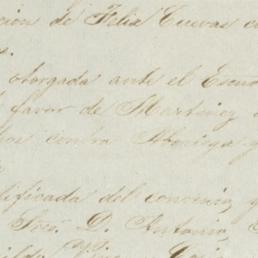 cion de Felix Cuevas c
s.
otorgada ante el Escri
favor de Martinez
contra Noriega y
tificada del convenio, q
Fco. D. Antonio,